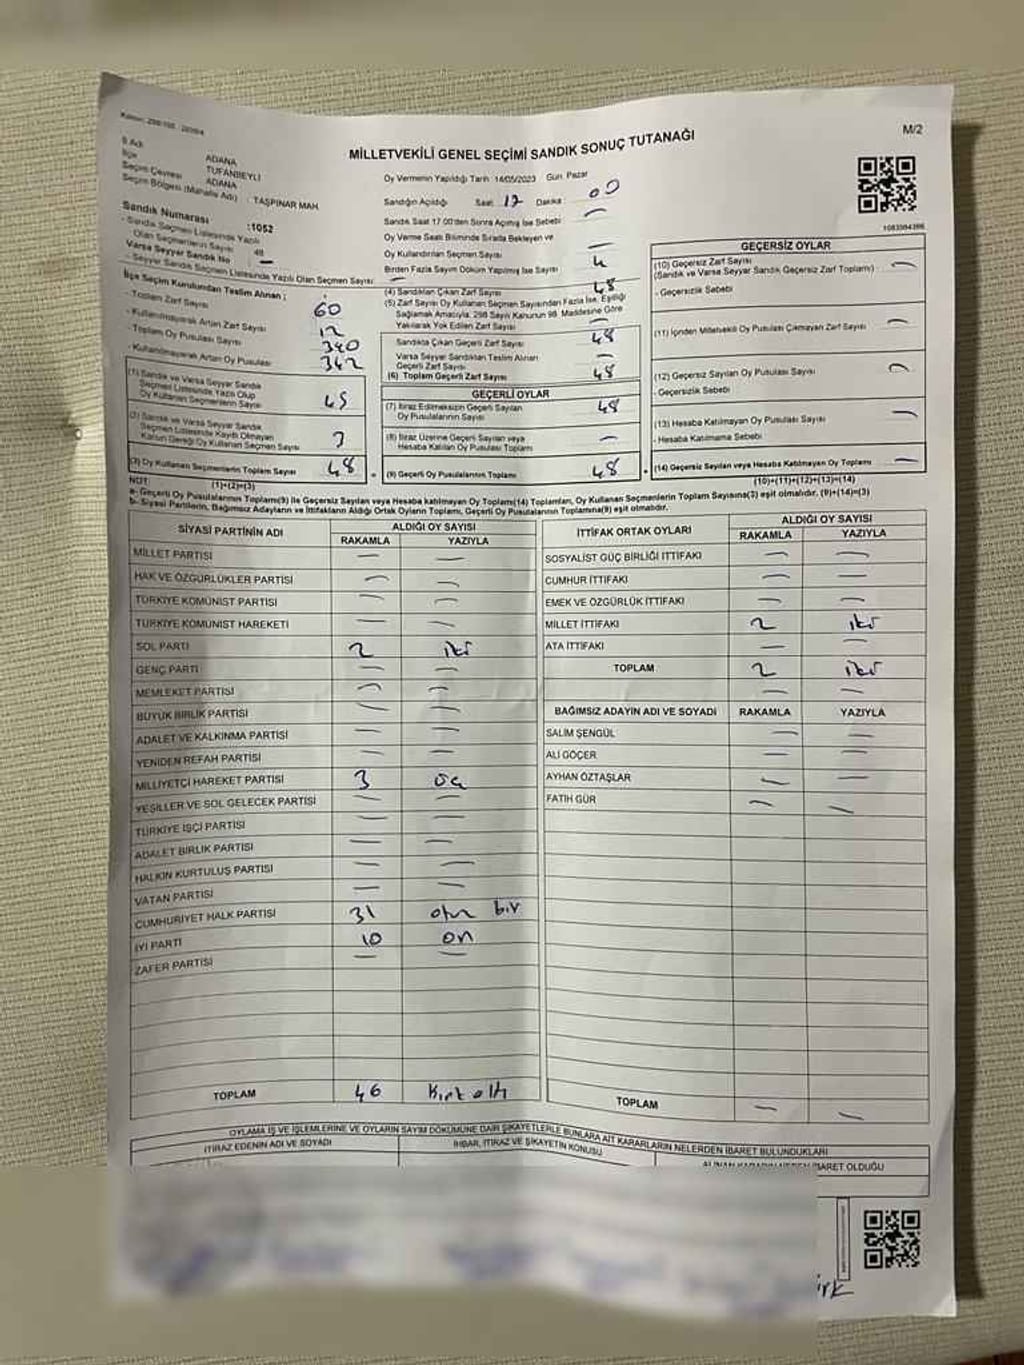 MİLLETVEKİLİ GENEL SEÇİMİ SANDIK SONUÇ TUTANAĞI
M/2
İl Adı ADANA
İlçe TUFANBEYLİ
Seçim Çevresi ADANA
Seçim Bölgesi (Mahalle Adı) : TAŞPINAR MAH.
Sandık Numarası :1052
- Sandık Seçmen Listesinde Yazılı
Olan Seçmenlerin Sayısı 48
Varsa Seyyar Sandık No —
- Seyyar Sandık Seçmen Listesinde Yazılı Olan Seçmen Sayısı —
İlçe Seçim Kurulundan Teslim Alınan ;
- Toplam Zarf Sayısı 60
- Kullanılmayarak Artan Zarf Sayısı 12
- Toplam Oy Pusulası Sayısı 390
- Kullanılmayarak Artan Oy Pusulası 342
(1) Sandık ve Varsa Seyyar Sandık
Seçmen Listesinde Yazılı Olup
Oy Kullanan Seçmenlerin Sayısı 45
(2) Sandık ve Varsa Seyyar Sandık
Seçmen Listesinde Kayıtlı Olmayan
Kanun Gereği Oy Kullanan Seçmen Sayısı 3
(3) Oy Kullanan Seçmenlerin Toplam Sayısı 48
(1)+(2)=(3)
Oy Vermenin Yapıldığı Tarih 14/05/2023 Gün. Pazar
Sandığın Açıldığı Saat 17 Dakika 00
Sandık Saat 17.00'den Sonra Açılmış İse Sebebi —
Oy Verme Saati Bitiminde Sırada Bekleyen ve
Oy Kullandırılan Seçmen Sayısı —
Birden Fazla Sayım Döküm Yapılmış İse Sayısı
(4) Sandıktan Çıkan Zarf Sayısı 48
(5) Zarf Sayısı Oy Kullanan Seçmen Sayısından Fazla İse, Eşitliği
Sağlamak Amacıyla; 298 Sayılı Kanunun 98. Maddesine Göre
Yakılarak Yok Edilen Zarf Sayısı —
Sandıkta Çıkan Geçerli Zarf Sayısı 48
Varsa Seyyar Sandıktan Teslim Alınan
Geçerli Zarf Sayısı —
(6) Toplam Geçerli Zarf Sayısı 48
GEÇERLİ OYLAR
(7) İtiraz Edilmeksizin Geçerli Sayılan
Oy Pusulalarının Sayısı 48
(8) İtiraz Üzerine Geçerli Sayılan veya
Hesaba Katılan Oy Pusulası Toplamı —
(9) Geçerli Oy Pusulalarının Toplamı 48
GEÇERSİZ OYLAR
(10) Geçersiz Zarf Sayısı
(Sandık ve Varsa Seyyar Sandık Geçersiz Zarf Toplamı) —
- Geçersizlik Sebebi
(11) İçinden Milletvekili Oy Pusulası Çıkmayan Zarf Sayısı —
(12) Geçersiz Sayılan Oy Pusulası Sayısı —
- Geçersizlik Sebebi
(13) Hesaba Katılmayan Oy Pusulası Sayısı —
- Hesaba Katılmama Sebebi
(14) Geçersiz Sayılan veya Hesaba Katılmayan Oy Toplamı —
(10)+(11)+(12)+(13)=(14)
NOT:
a- Geçerli Oy Pusulalarının Toplamı(9) ile Geçersiz Sayılan veya Hesaba katılmayan Oy Toplamı(14) Toplamları, Oy Kullanan Seçmenlerin Toplam Sayısına(3) eşit olmalıdır. (9)+(14)=(3)
b- Siyasi Partilerin, Bağımsız Adayların ve İttifakların Aldığı Ortak Oyların Toplamı, Geçerli Oy Pusulalarının Toplamına(9) eşit olmalıdır.
SİYASİ PARTİNİN ADI ALDIĞI OY SAYISI
RAKAMLA YAZIYLA
MİLLET PARTİSİ — —
HAK VE ÖZGÜRLÜKLER PARTİSİ — —
TÜRKİYE KOMÜNİST PARTİSİ — —
TÜRKİYE KOMÜNİST HAREKETİ — —
SOL PARTİ 2 iki
GENÇ PARTİ — —
MEMLEKET PARTİSİ — —
BÜYÜK BİRLİK PARTİSİ — —
ADALET VE KALKINMA PARTİSİ — —
YENİDEN REFAH PARTİSİ — —
MİLLİYETÇİ HAREKET PARTİSİ 3 üç
YEŞİLLER VE SOL GELECEK PARTİSİ — —
TÜRKİYE İŞÇİ PARTİSİ — —
ADALET BİRLİK PARTİSİ — —
HALKIN KURTULUŞ PARTİSİ — —
VATAN PARTİSİ — —
CUMHURİYET HALK PARTİSİ 31 otuz bir
İYİ PARTİ 10 on
ZAFER PARTİSİ — —
TOPLAM 46 Kırk altı
İTTİFAK ORTAK OYLARI ALDIĞI OY SAYISI
RAKAMLA YAZIYLA
SOSYALİST GÜÇ BİRLİĞİ İTTİFAKI — —
CUMHUR İTTİFAKI — —
EMEK VE ÖZGÜRLÜK İTTİFAKI — —
MİLLET İTTİFAKI 2 iki
ATA İTTİFAKI — —
TOPLAM 2 iki
BAĞIMSIZ ADAYIN ADI VE SOYADI RAKAMLA YAZIYLA
SALİM ŞENGÜL — —
ALİ GÖÇER — —
AYHAN ÖZTAŞLAR — —
FATİH GÜR — —
TOPLAM — —
OYLAMA İŞ VE İŞLEMLERİNE VE OYLARIN SAYIM DÖKÜMÜNE DAİR ŞİKAYETLERLE BUNLARA AİT KARARLARIN NELERDEN İBARET BULUNDUKLARI
İTİRAZ EDENİN ADI VE SOYADI
İHBAR, İTİRAZ VE ŞİKAYETİN KONUSU